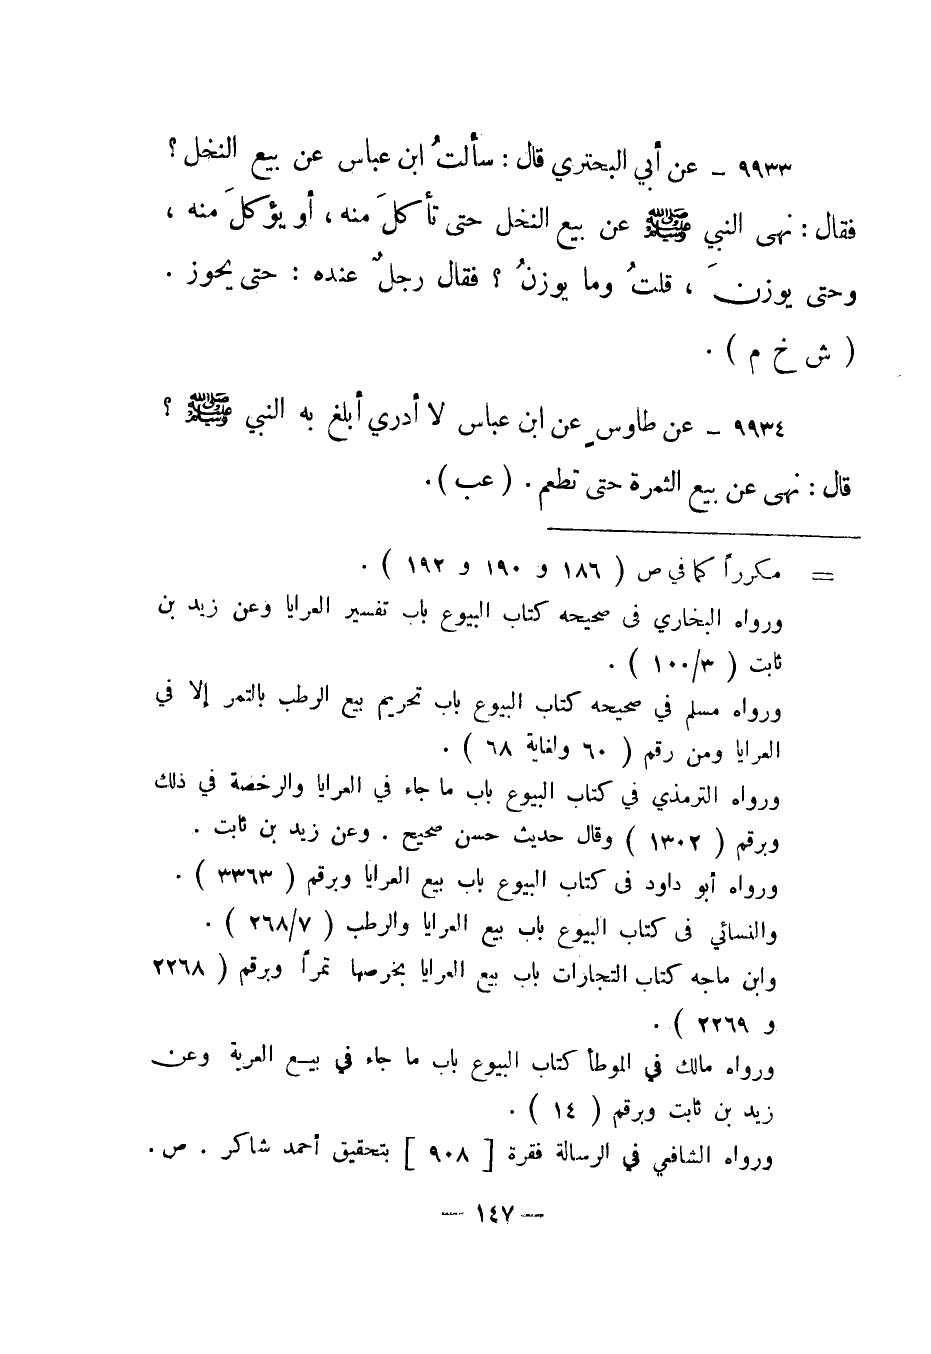 ٩٩٣٣ – عن أبي البحتري قال : سألتُ ابن عباس عن بيع النخل ؟
فقال : نهى النبي ﷺ عن بيع النخل حتى تأكلَ منه ، أو يؤكلَ منه ،
وحتى يوزنَ ، قلتُ وما يوزنُ ؟ فقال رجلٌ عنده : حتى يحوز .
( ش خ م ) .
٩٩٣٤ – عن طاوسٍ عن ابن عباس لا أدري أبلغ به النبي ﷺ ؟
قال : نهى عن بيع الثمرة حتى تطعم . ( عب ) .
= مكرراً كما في ص ( ١٨٦ و ١٩٠ و ١٩٢ ) .
ورواه البخاري فى صحيحه كتاب البيوع باب تفسير العرايا وعن زيد بن
ثابت ( ٣/١٠٠ ) .
ورواه مسلم في صحيحه كتاب البيوع باب تحريم بيع الرطب بالتمر إلا في
العرايا ومن رقم ( ٦٠ ولغاية ٦٨ ) .
ورواه الترمذي في كتاب البيوع باب ما جاء في العرايا والرخصة في ذلك
وبرقم ( ١٣٠٢ ) وقال حديث حسن صحيح . وعن زيد بن ثابت .
ورواه أبو داود فى كتاب البيوع باب بيع العرايا وبرقم ( ٣٣٦٣ ) .
والنسائي فى كتاب البيوع باب بيع العرايا والرطب ( ٧/٢٦٨ ) .
وابن ماجه كتاب التجارات باب بيع العرايا بخرصها تمراً وبرقم ( ٢٢٦٨
و ٢٢٦٩ ) .
ورواه مالك في الموطأ كتاب البيوع باب ما جاء في بيع العرية وعن
زيد بن ثابت وبرقم ( ١٤ ) .
ورواه الشافعي في الرسالة فقرة [ ٩٠٨ ] بتحقيق أحمد شاكر . ص .
— ١٤٧ —